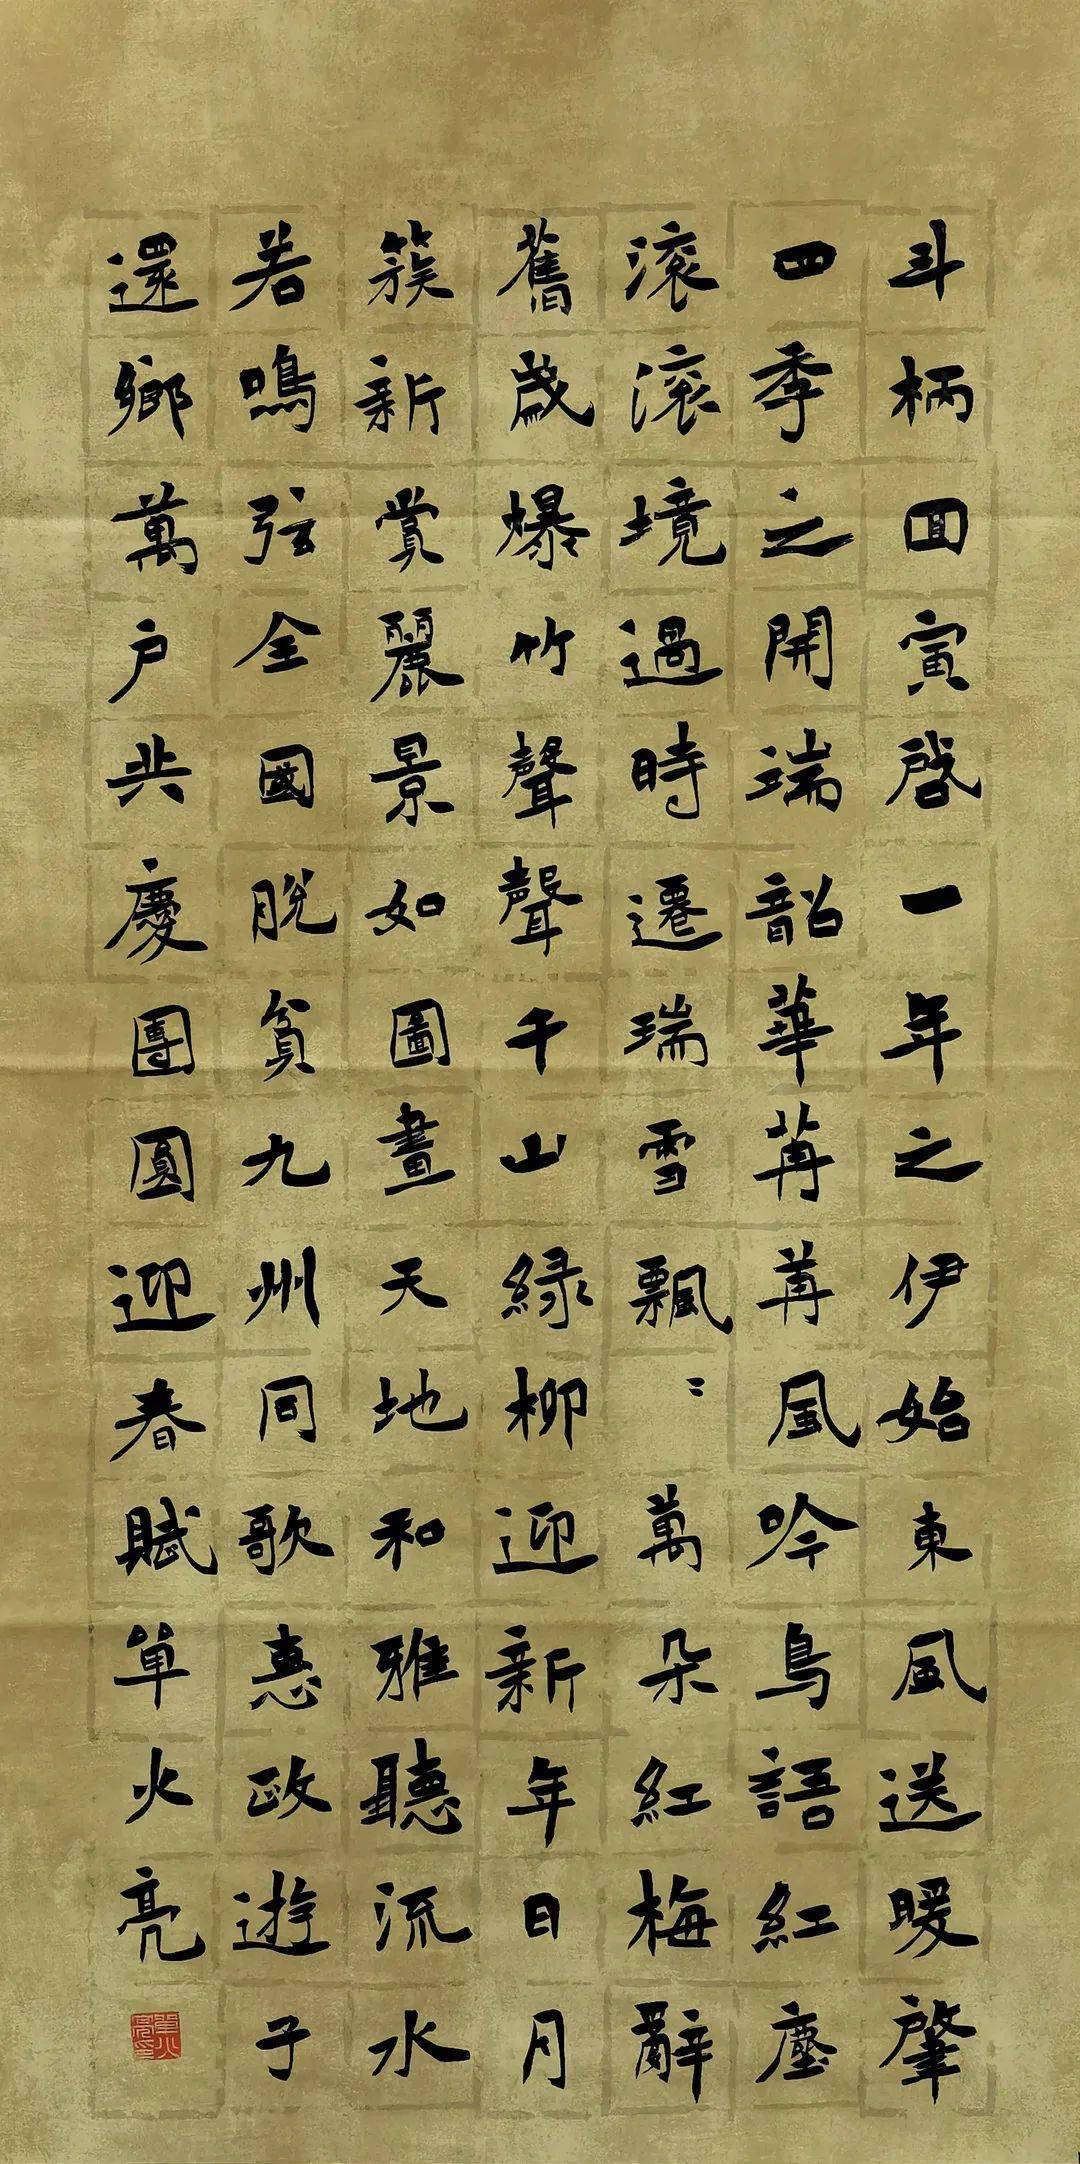 斗柄回寅啓一年之伊始東風送暖肇
四季之開端韶華苒苒風吟鳥語紅塵
滾滾境過時遷瑞雪飄〻萬朵紅梅辭
舊歲爆竹聲聲千山綠柳迎新年日月
簇新賞麗景如圖畫天地和雅聽流水
若鳴弦全國脫貧九州同歌惠政遊子
還鄉萬戶共慶團圓迎春賦單火亮
單火亮印